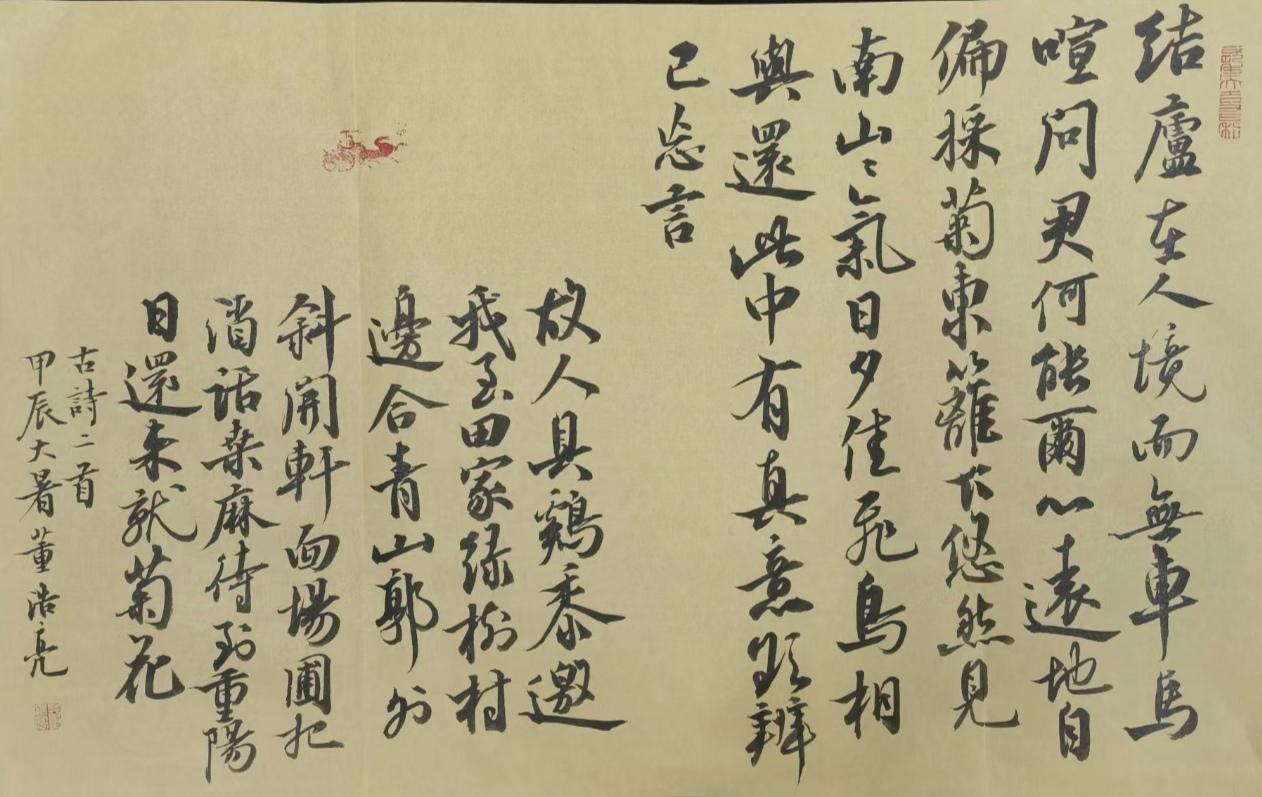 結廬在人境而無車馬
喧問君何能爾心遠地自
偏採菊東籬下悠然見
南山〻氣日夕佳飛鳥相
與還此中有真意欲辨
已忘言
故人具鷄黍邀
我至田家綠樹村
邊合青山郭外
斜開軒面場圃把
酒話桑麻待到重陽
日還來就菊花
古詩二首
甲辰大暑董浩亮